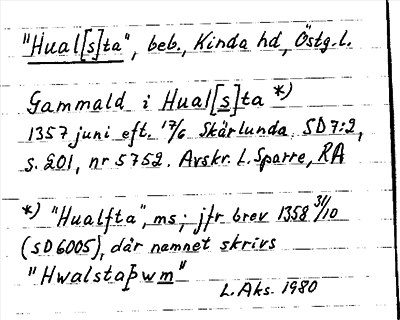 "Hual[s]ta", beb., Kinda hd, Östg. l.
Gammald i Hual[s]ta *)
1357 juni eft. 17/6 Skärlunda SD 7:2,
s. 201, nr 5752. Avskr. L. Sparre, RA
*) "Hualfta", ms; jfr brev 1358 31/10
(SD 6005), där namnet skrivs
"Hwalstaþwm"
L. Aks. 1980